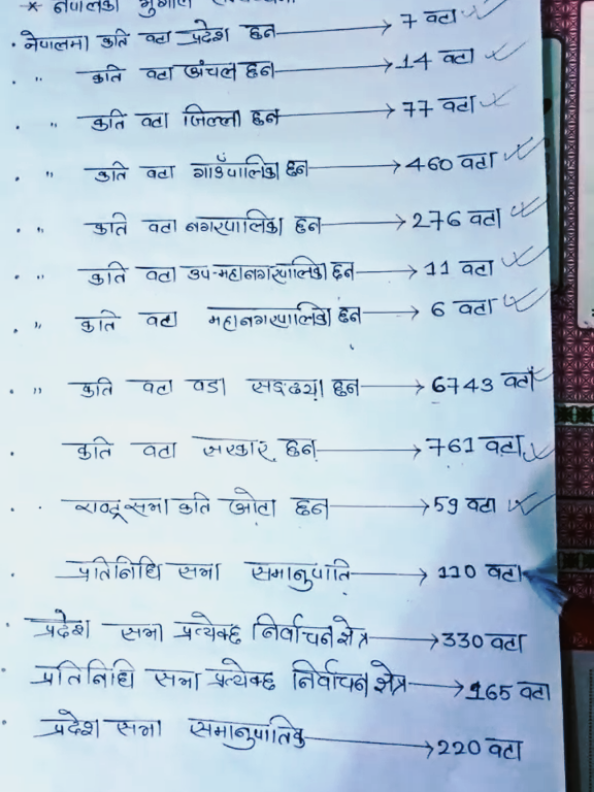 * नेपालको भुगोल
• नेपालमा कति वटा प्रदेश छन → 7 वटा
• " कति वटा अंचल छन → 14 वटा
• " कति वटा जिल्ला छन → 77 वटा
• " कति वटा गाउँपालिका छन → 460 वटा
• " कति वटा नगरपालिका छन → 276 वटा
• " कति वटा उप-महानगरपालिका छन → 11 वटा
• " कति वटा महानगरपालिका छन → 6 वटा
• " कति वटा वडा सङख्या छन → 6743 वटा
• कति वटा सरकार छन → 761 वटा
• राष्ट्र सभा कति ओटा छन → 59 वटा
• प्रतिनिधि सभा समानुपाति → 110 वटा
• प्रदेश सभा प्रत्येक्ष निर्वाचन क्षेत्र → 330 वटा
• प्रतिनिधि सभा प्रत्येक्ष निर्वाचन क्षेत्र → 165 वटा
• प्रदेश सभा समानुपातिक → 220 वटा